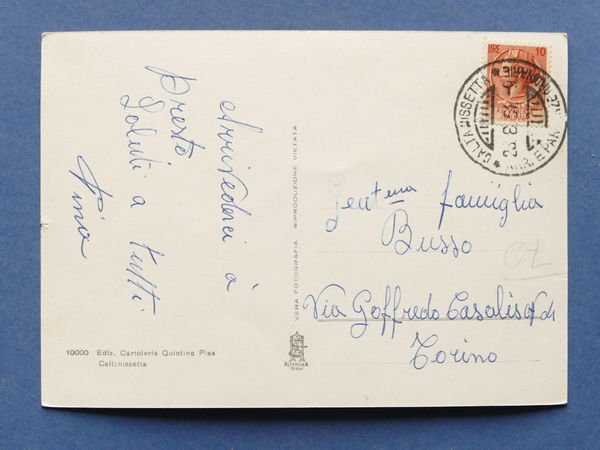 LIRE 10
CALTANISSETTA
Arrivederci à
presto
Saluti a tutti
Pino
Gent.ma famiglia
Busso
Via Goffredo Casalis
Torino
CL
VERA FOTOGRAFIA - RIPRODUZIONE VIETATA
10000 Ediz. Cartoleria Quintino Pisa
Caltanissetta
ALTEROCCA
TERNI